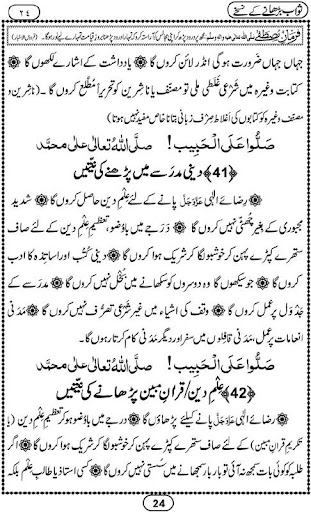 ٢٤
ثواب بڑھانے کے نسخے
فرمانِ مصطَفٰے صلی اللہ تعالیٰ علیہ والہ وسلم
جہاں جہاں ضَرورت ہو گی انڈر لائن کروں گا ۞ یادداشت کے اشارے لکھوں گا ۞
کتابت وغیرہ میں شَرْعی غلَطی ملی تو مصنف یا ناشِرین کو تحریراً مُطَّلع کروں گا (ناشِرین و
مصنف وغیرہ کو کتابوں کی اغلاط صِرف زبانی بتانا خاص مفید نہیں ہوتا)
صَلُّوا عَلَى الْحَبِيب! صلَّى اللهُ تعالٰى علٰى محمَّد
﴿41﴾ دینی مدرَسے میں پڑھنے کی نیّتیں
۞ رضائے الٰہی عَزَّوَجَلَّ پانے کے لئے عِلْمِ دین حاصل کروں گا ۞ شدید
مجبوری کے بغیر چھٹی نہیں کروں گا ۞ دَرَجے میں باوُضو، تعظیمِ عِلْمِ دین کے لئے صاف
ستھرے کپڑے پہن کر خوشبو لگا کر شریک ہوا کروں گا ۞ دینی کُتُب اور اساتِذہ کا ادب
کروں گا ۞ جو سیکھوں گا وہ دوسروں کو سکھانے میں بُخْل نہیں کروں گا ۞ مدرَسے کے
جَدْوَل پر عمل کروں گا ۞ وقف کی اشیاء میں غیر شَرْعی تَصَرُّف نہیں کروں گا ۞ مَدَنی
انعامات پر عمل، مَدَنی قافِلوں میں سفر اور دیگر مَدَنی کام کرتا رہوں گا۔
صَلُّوا عَلَى الْحَبِيب! صلَّى اللهُ تعالٰى علٰى محمَّد
﴿42﴾ عِلْمِ دین/قراٰنِ مبین پڑھانے کی نیّتیں
۞ رضائے الٰہی عَزَّوَجَلَّ پانے کیلئے پڑھاؤں گا ۞ درجے میں باوُضو ہو کر تعظیمِ علمِ دین (یا
تکریمِ قراٰنِ مبین) کے لئے صاف ستھرے کپڑے پہن کر خوشبو لگا کر شریک ہوا کروں گا ۞
طلبہ کو کوئی بات سمجھ نہ آئی تو بار بار سمجھانے میں سُستی نہیں کروں گا ۞ کسی استاذ یا طالبِ عِلْم بلکہ
24